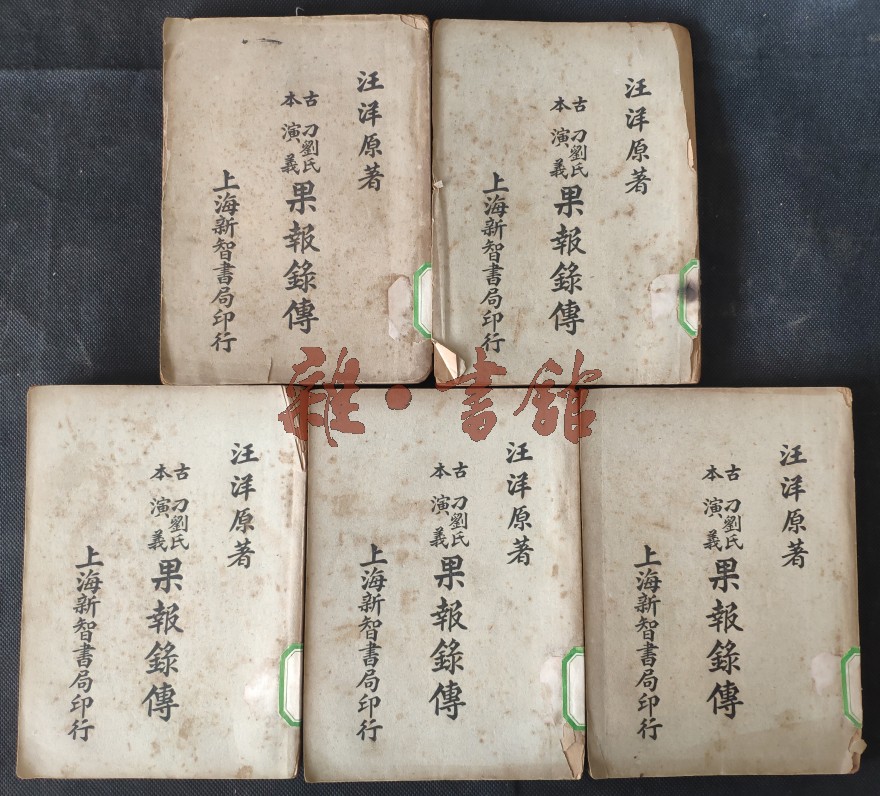 汪洋原著
古本刁劉氏演義果報錄傳
上海新智書局印行
汪洋原著
古本刁劉氏演義果報錄傳
上海新智書局印行
雜·書館
汪洋原著
古本刁劉氏演義果報錄傳
上海新智書局印行
汪洋原著
古本刁劉氏演義果報錄傳
上海新智書局印行
汪洋原著
古本刁劉氏演義果報錄傳
上海新智書局印行